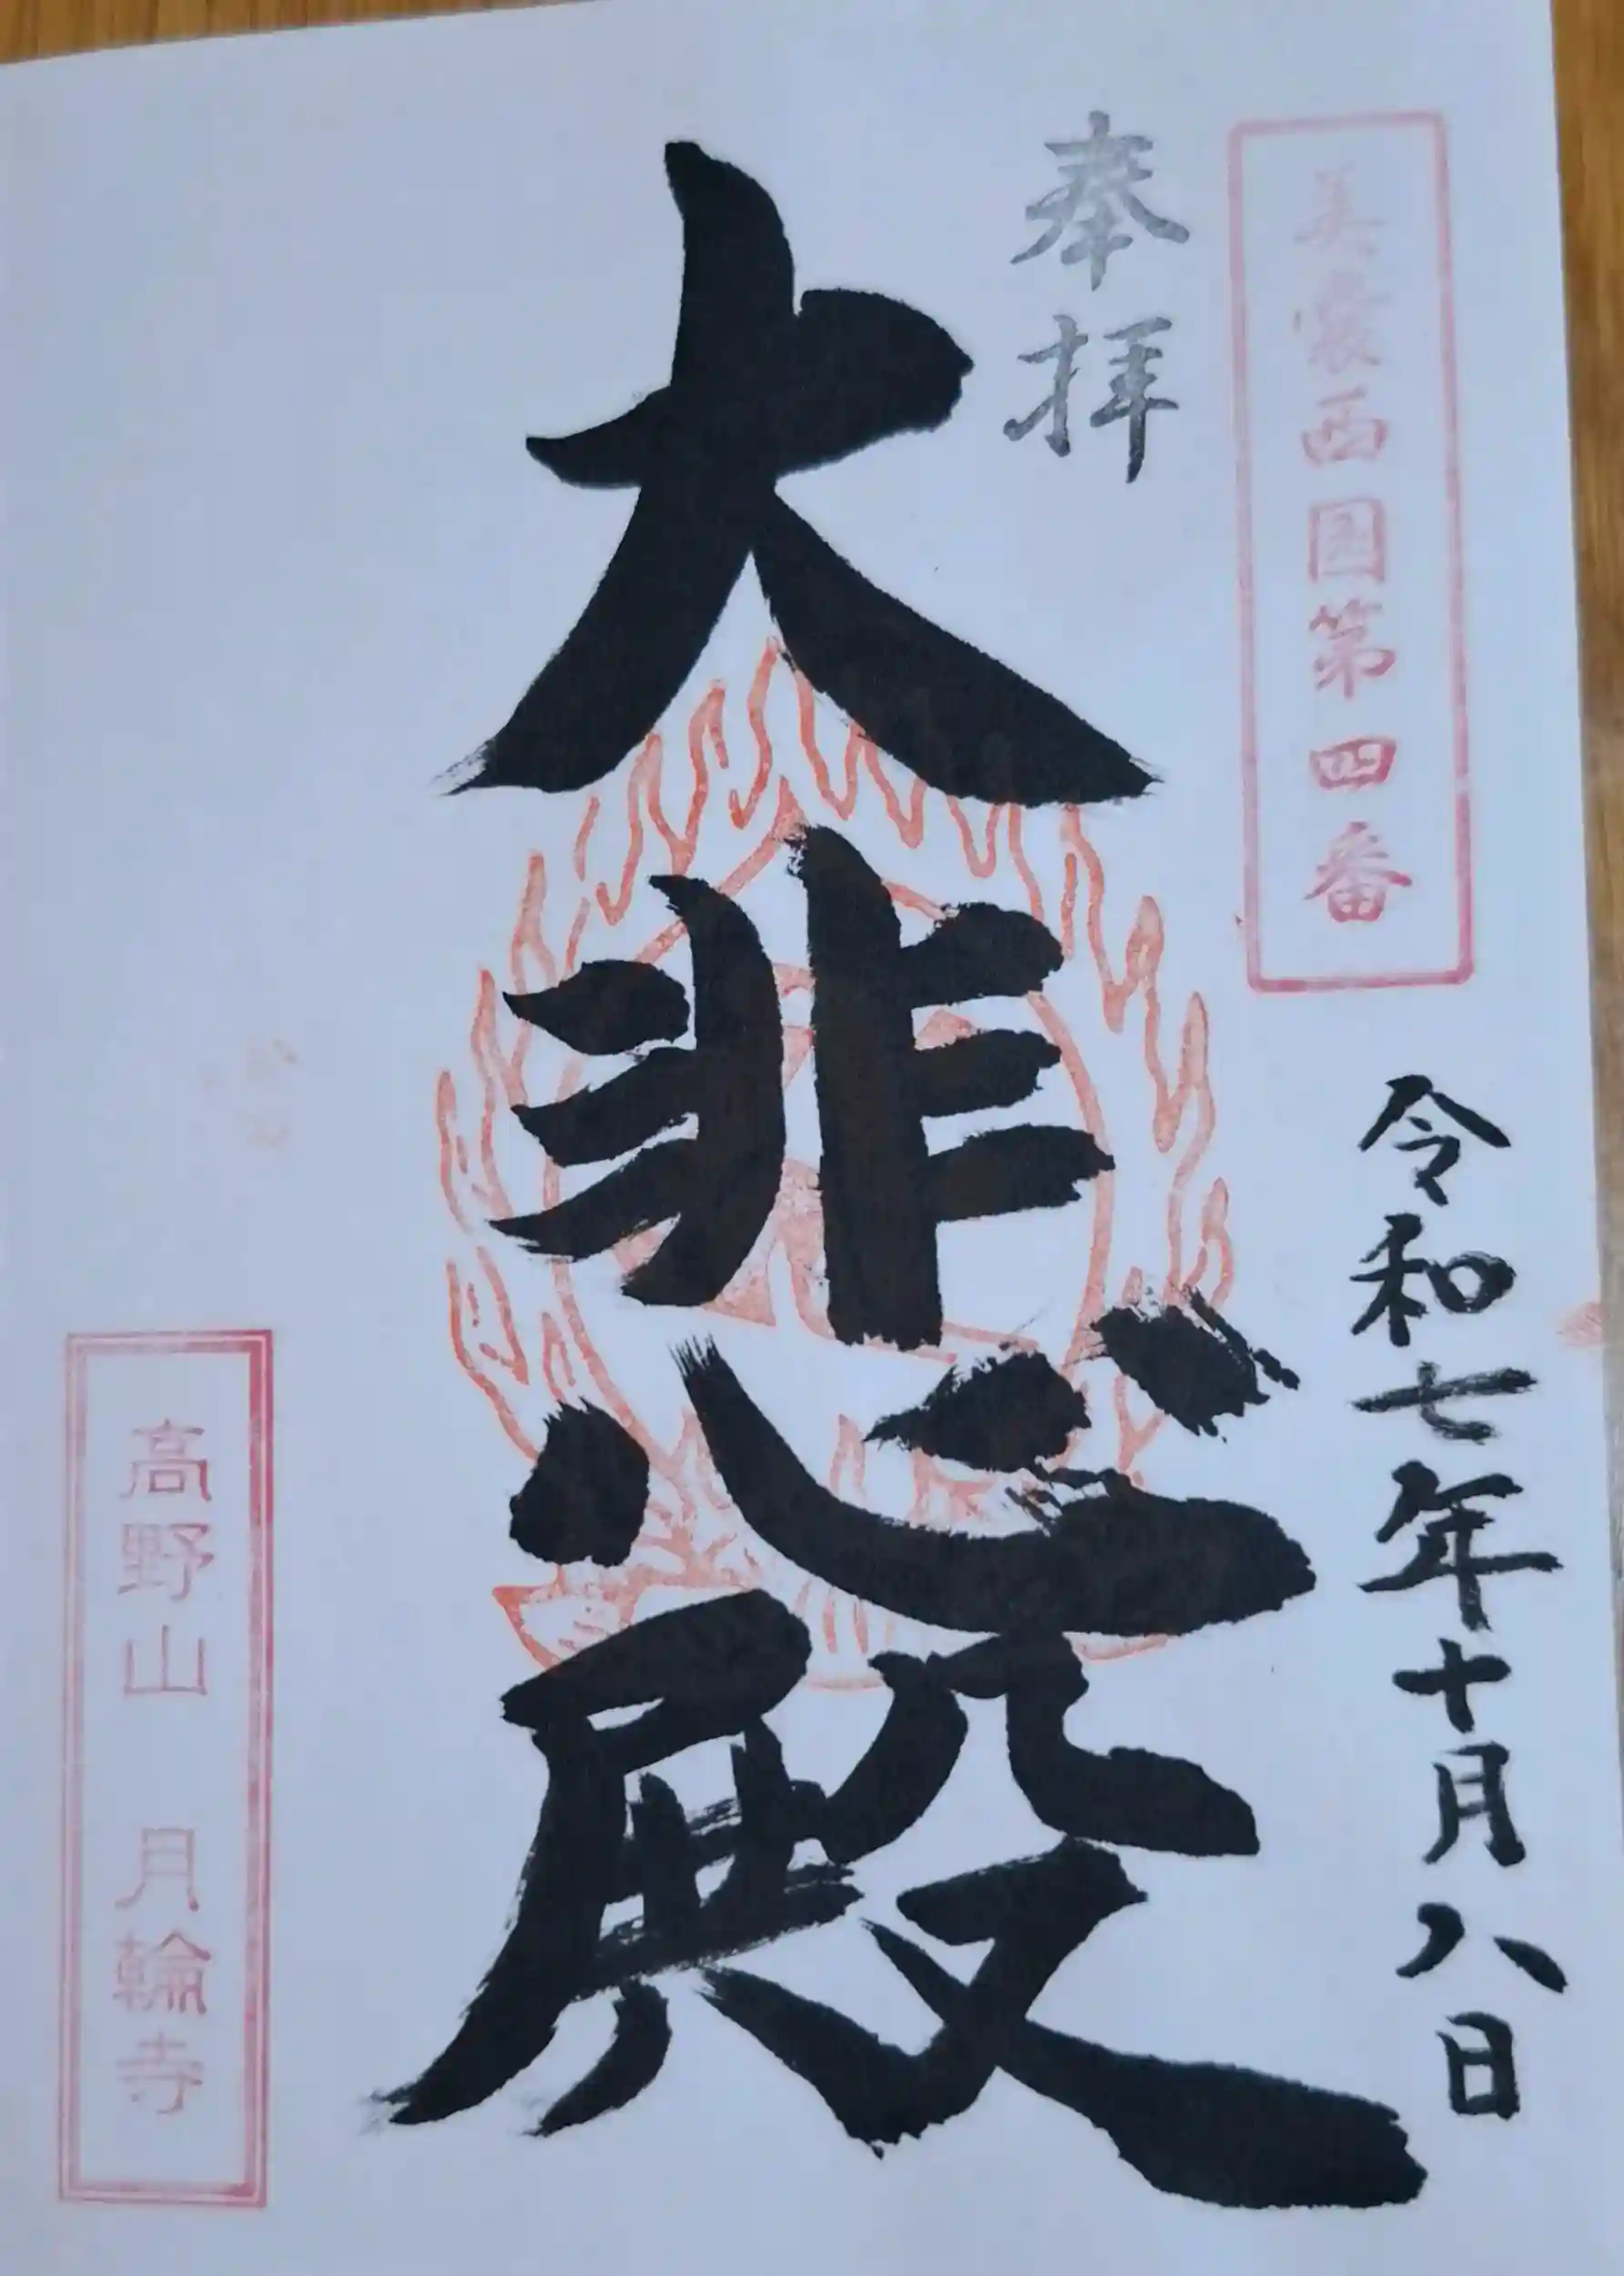 美嚢西國第四番
奉拝
令和七年十月八日
大悲殿
高野山 月輪寺